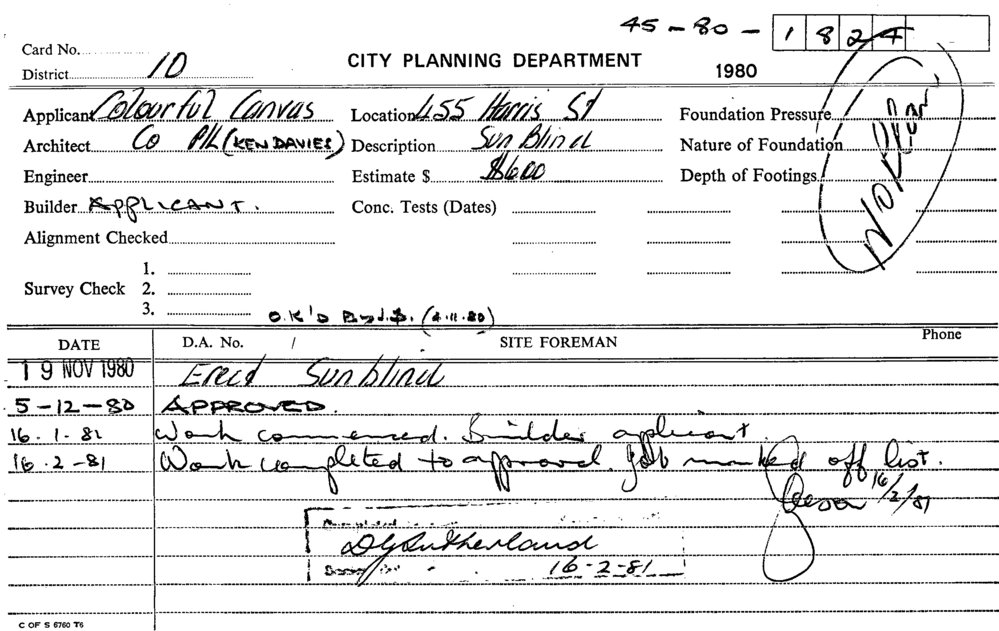 45-80- 1 8 2 4
Card No.
District 10
CITY PLANNING DEPARTMENT
1980
Applicant Colourful Canvas
Location 455 Harris St
Foundation Pressure
Architect Co P/L (KEN DAVIES)
Description Sun Blind
Nature of Foundation
Engineer
Estimate $ $600
Depth of Footings
Builder APPLICANT.
Conc. Tests (Dates)
Alignment Checked
Survey Check 1.
2.
3.
O.K'D (4.11.80)
DATE D.A. No. / SITE FOREMAN Phone
19 NOV 1980 Erect Sunblind
5-12-80 APPROVED.
16.1.81 Work commenced. Builder aplicant.
16.2-81 Work completed to approval. Job marked off list.
16/2/81
Completed
DGSutherland
16-2-81
C OF S 6760 T6